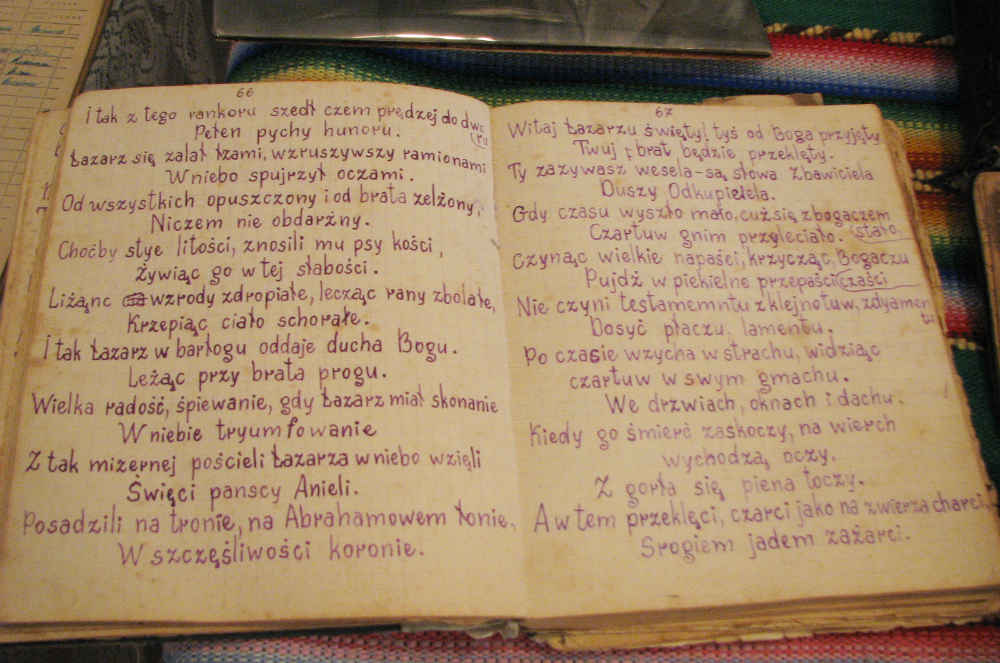 66
I tak z tego rankoru szedł czem prędzej do dwo
(ru
Pełen pychy hunoru.
Łazarz się zalał łzami, wzruszywszy ramionami
W niebo spujrzył oczami.
Od wszystkich opuszczony i od brata zelżony,
Niczem nie obdarżny.
Choćby stye litości, znosili mu psy kości,
Żywiąc go w tej słabości.
Liżąnc wzrody zdropiałe, lecząc rany zbolałe,
Krzepiąc ciało schorałe.
I tak Łazarz w barłogu oddaje ducha Bogu.
Leżąc przy brata progu.
Wielka radość, śpiewanie, gdy Łazarz miał skonanie
W niebie tryumfowanie
Z tak mizernej pościeli Łazarza w niebo wzięli
Święci panscy Anieli.
Posadzili na tronie, na Abrahamowem łonie,
W szczęśliwości koronie.
67
Witaj Łazarzu święty! tyś od Boga przyjęty,
Twuj brat będzie przeklęty.
Ty zazywasz wesela-są słowa Zbawiciela
Duszy Odkupielela.
Gdy czasu wyszło mało, cuż się z bogaczem
(stało.
Czartuw gnim przyleciało.
Czynąc wielkie napaści, krzycząc, Bogaczu
Pujdź w piekielne przepaści (czaści
Nie czyni testamemntu z klejnotuw, zdyamen
tu
Dosyć płaczu, lamentu.
Po czasie wzycha w strachu, widziąc
czartuw w swym gmachu.
We drzwiach, oknach i dachu.
Kiedy go śmierć zaskoczy, na wierch
wychodzą oczy.
Z gorła się piena toczy.
A w tem przeklęci, czarci jako na zwierza charci,
Srogiem jadem zażarci.